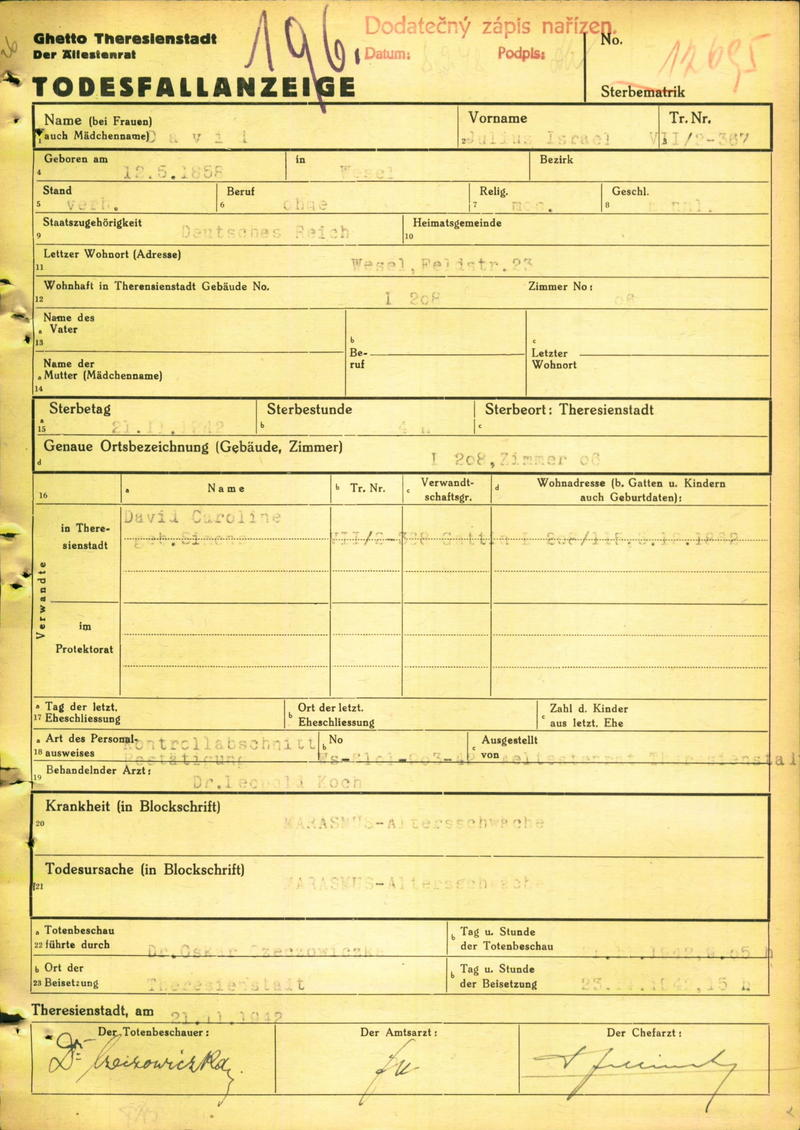 Ghetto Theresienstadt
Der Ältestenrat
196
Dodatečný zápis nařízen.
Datum:
Podpis:
No.
12695
Sterbematrik
TODESFALLANZEIGE
Name (bei Frauen)
1 auch Mädchenname) David
Vorname
2 Julius Israel
Tr. Nr.
3 VII/2-387
Geboren am
4 12.5.1858
in
Wesel
Bezirk
Stand
5 verh.
Beruf
6 ohne
Relig.
7 mos.
Geschl.
8 männl.
Staatszugehörigkeit
9 Deutsches Reich
Heimatsgemeinde
10
Lettzer Wohnort (Adresse)
11 Wesel, Feldstr.23
Wohnhaft in Therensienstadt Gebäude No.
12 I 2o8
Zimmer No:
o6
Name des
a Vater
13
Name der
a Mutter (Mädchenname)
14
b
Be-
ruf
c
Letzter
Wohnort
Sterbetag
a 15 21.11.1942
Sterbestunde
b 4 u
Sterbeort: Theresienstadt
c
Genaue Ortsbezeichnung (Gebäude, Zimmer)
d I 2o8, Zimmer o6
16
a Name
b Tr. Nr.
c Verwandt-
schaftsgr.
d Wohnadresse (b. Gatten u. Kindern
auch Geburtdaten):
Verwandte
in There-
sienstadt
David Caroline
geb. Simons VII/2-388 Gattin I
im
Protektorat
a Tag der letzt.
17 Eheschliessung
b Ort der letzt.
Eheschliessung
c Zahl d. Kinder
aus letzt. Ehe
a Art des Personal-
18 ausweises
Kontrollabschnitt
Bestätigung
b No
c Ausgestellt
von Ältestenrat Theresienstadt
19 Behandelnder Arzt:
Dr. Leopold Koch
Krankheit (in Blockschrift)
20 MARASMUS-Altersschwäche
Todesursache (in Blockschrift)
21 MARASMUS-Altersschwäche
a Totenbeschau
22 führte durch
Dr. Oskar Czeczowiczka
b Tag u. Stunde
der Totenbeschau
b Ort der
23 Beisetzung Theresienstadt
b Tag u. Stunde
der Beisetzung 23.11.1942, 15 h
Theresienstadt, am 21.11.1942
Der Totenbeschauer:
Der Amtsarzt:
Der Chefarzt:
Dr.